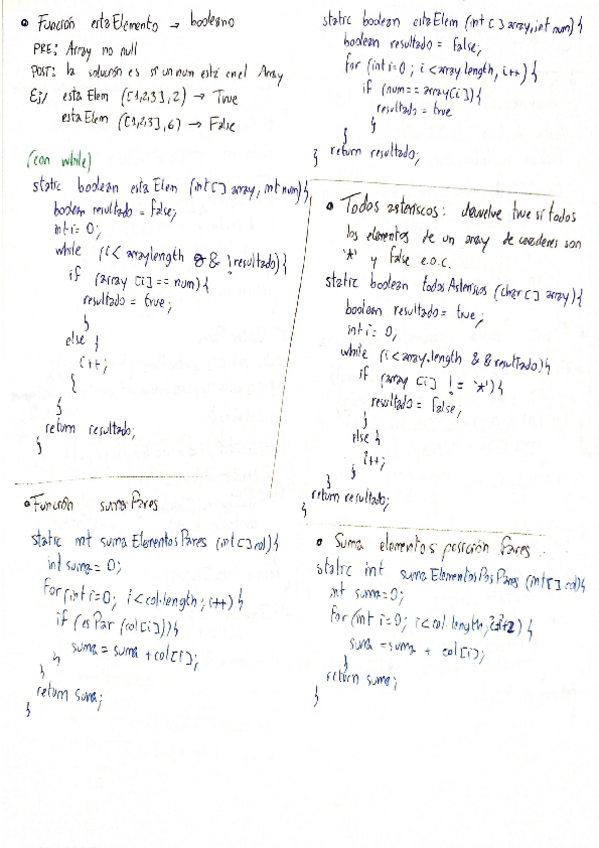 • Función estaElemento → booleano
PRE: Array no null
POST: la solución es si un num está en el Array
Ej/ estaElem ([1,2,3],2) → True
estaElem ([1,2,3],6) → False
(con while)
static boolean estaElem (int[] array, int num){
boolean resultado = false;
int i = 0;
while (i < array.length && !resultado){
if (array [i] == num){
resultado = true;
}
else {
i++;
}
}
return resultado;
}
• Función suma Pares
static int suma Elementos Pares (int[] col){
int suma = 0;
for (int i=0; i<col.length; i++) {
if (esPar (col[i])){
suma = suma + col[i];
}
}
return suma;
}
static boolean estaElem (int[] array, int num){
boolean resultado = false;
for (int i=0; i<array.length, i++){
if (num == array[i]){
resultado = true
}
}
} return resultado;
• Todos asteriscos: devuelve true si todos
los elementos de un array de caracteres son
'*' y false e.o.c.
static boolean todos Asteriscos (char[] array){
boolean resultado = true;
int i = 0;
while (i<array.length && resultado){
if (array [i] != '*'){
resultado = false;
}
else {
i++;
}
}
return resultado;
}
• Suma elementos posición Pares.
static int suma Elementos Pos Pares (int[] col){
int suma=0;
for (int i=0; i<col.length; i+2) {
suma = suma + col[i];
}
return suma;
}